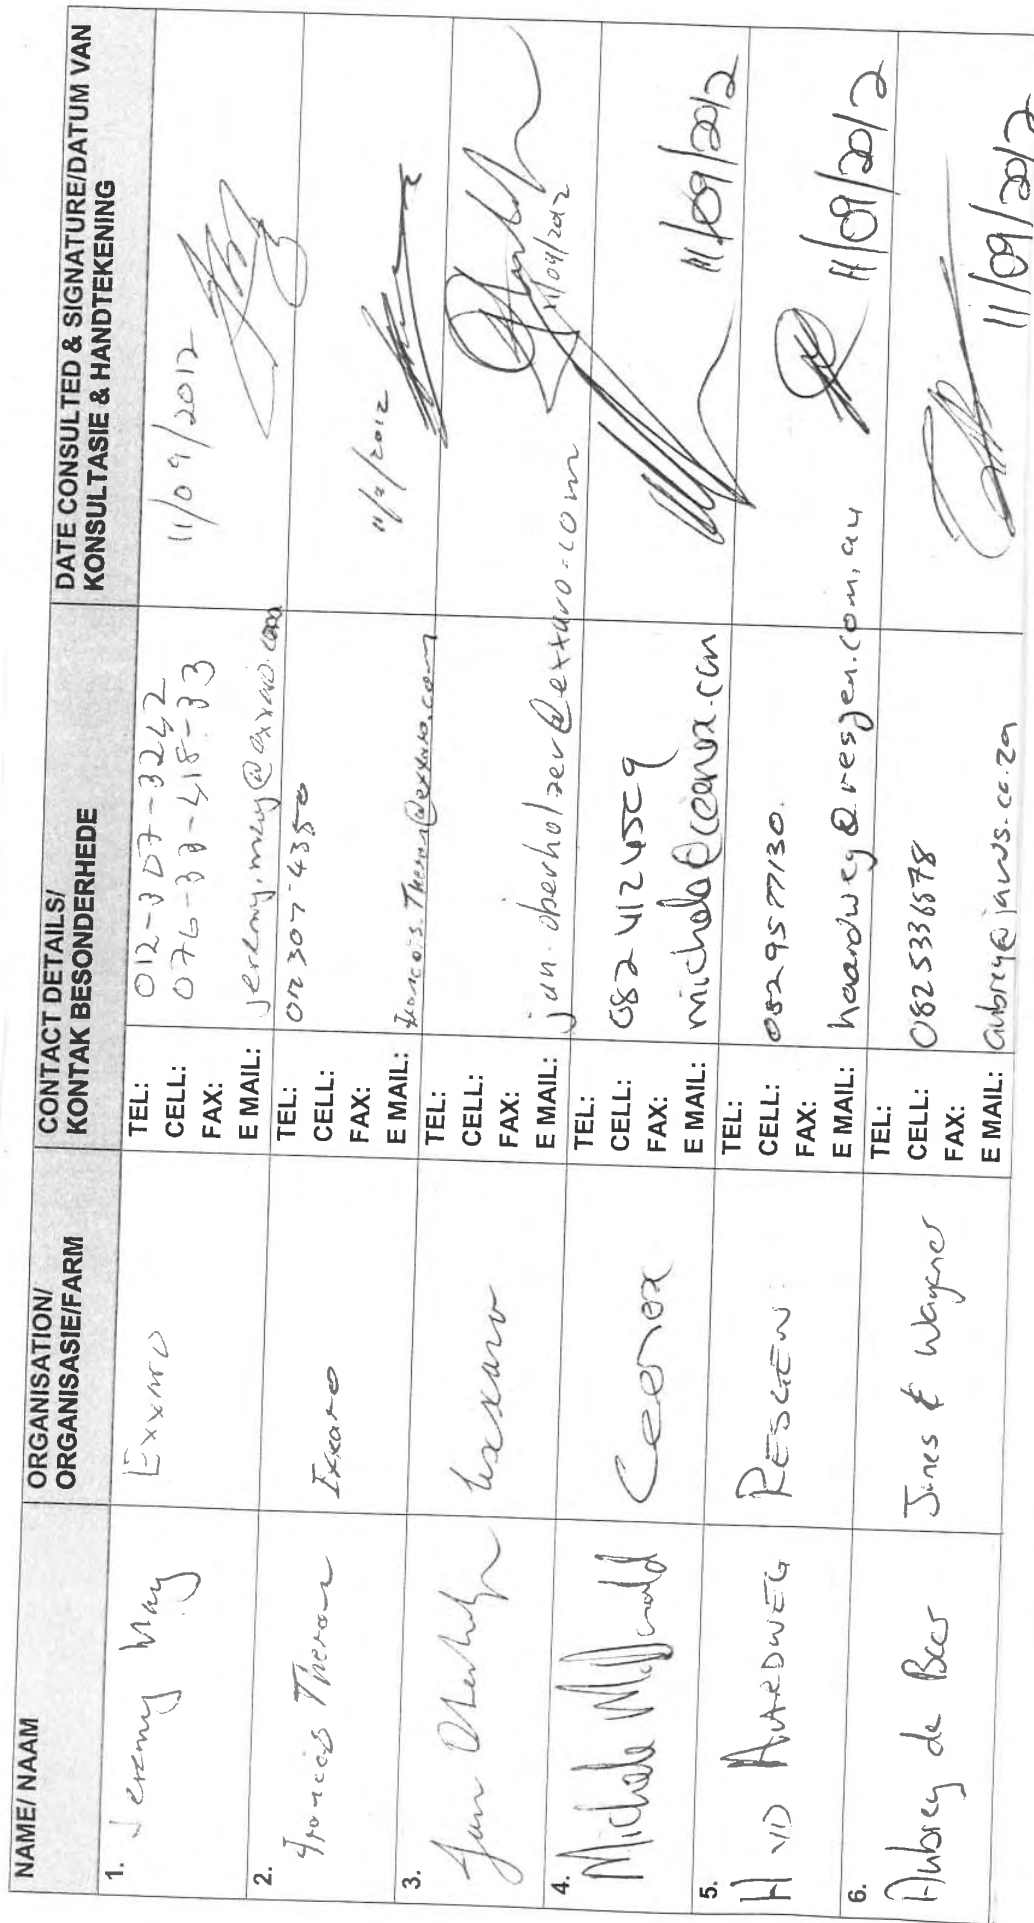 NAME/ NAAM
ORGANISATION/
ORGANISASIE/FARM
CONTACT DETAILS/
KONTAK BESONDERHEDE
DATE CONSULTED & SIGNATURE/DATUM VAN
KONSULTASIE & HANDTEKENING
1.
Jeremy May
Exxaro
TEL: 012-307-3242
CELL: 076-33-418-33
FAX:
E MAIL: jeremy.may@exxaro.com
11/09/2012
2.
Francois Theron
Exxaro
TEL: 012 307 4380
CELL:
FAX:
E MAIL: francois.Theron@exxaro.com
11/9/2012
3.
Jan
Exxaro
TEL:
CELL:
FAX:
E MAIL: jan.oberholzer@exxaro.com
11/09/2012
4.
Michale
Ceenex
TEL:
CELL: 082 412 4509
FAX:
E MAIL: michale@ceenex.com
11/09/2012
5.
H VD AARDWEG
RESGEN
TEL:
CELL: 0829577130.
FAX:
E MAIL: haardweg@resgen.com.au
11/09/2012
6.
Aubrey de Beer
Jones & Wagener
TEL:
CELL: 0825336578
FAX:
E MAIL: aubrey@jaws.co.za
11/09/2012